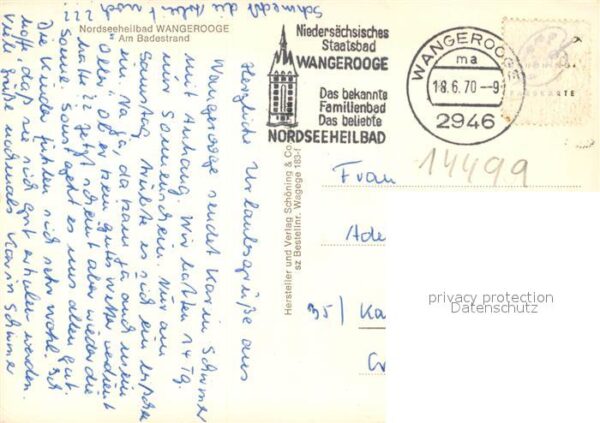 Nordseeheilbad WANGEROOGE
Am Badestrand
Schmeckt die Arbeit noch ???
Herzliche Urlaubsgrüße aus
Wangerooge sendet Karin Schirmer
mit Anhang. Wir hatten 14 Tg.
nur Sonnenschein. Nur am
Samstag trübte es sich ein
Na ja, da kam ja auch mein
" Öller " ob er kein gutes Wetter verdient
hatte ?? Jetzt scheint aber wieder die
Sonne. Sonst geht es uns allen gut.
Die Kinder fühlen sich sehr wohl. Ich
hoffe, daß sie sich gut erholen werden.
Viele Grüße nochmals Karin Schirmer
Niedersächsisches
Staatsbad
WANGEROOGE
Das bekannte
Familienbad
Das beliebte
NORDSEEHEILBAD
WANGEROOGE
ma
18.6.70-9
2946
14499
Hersteller und Verlag Schöning & Co.
sz Bestellnr. Wagege 183-f
Frau
Ade
35/ Ka
privacy protection
Datenschutz